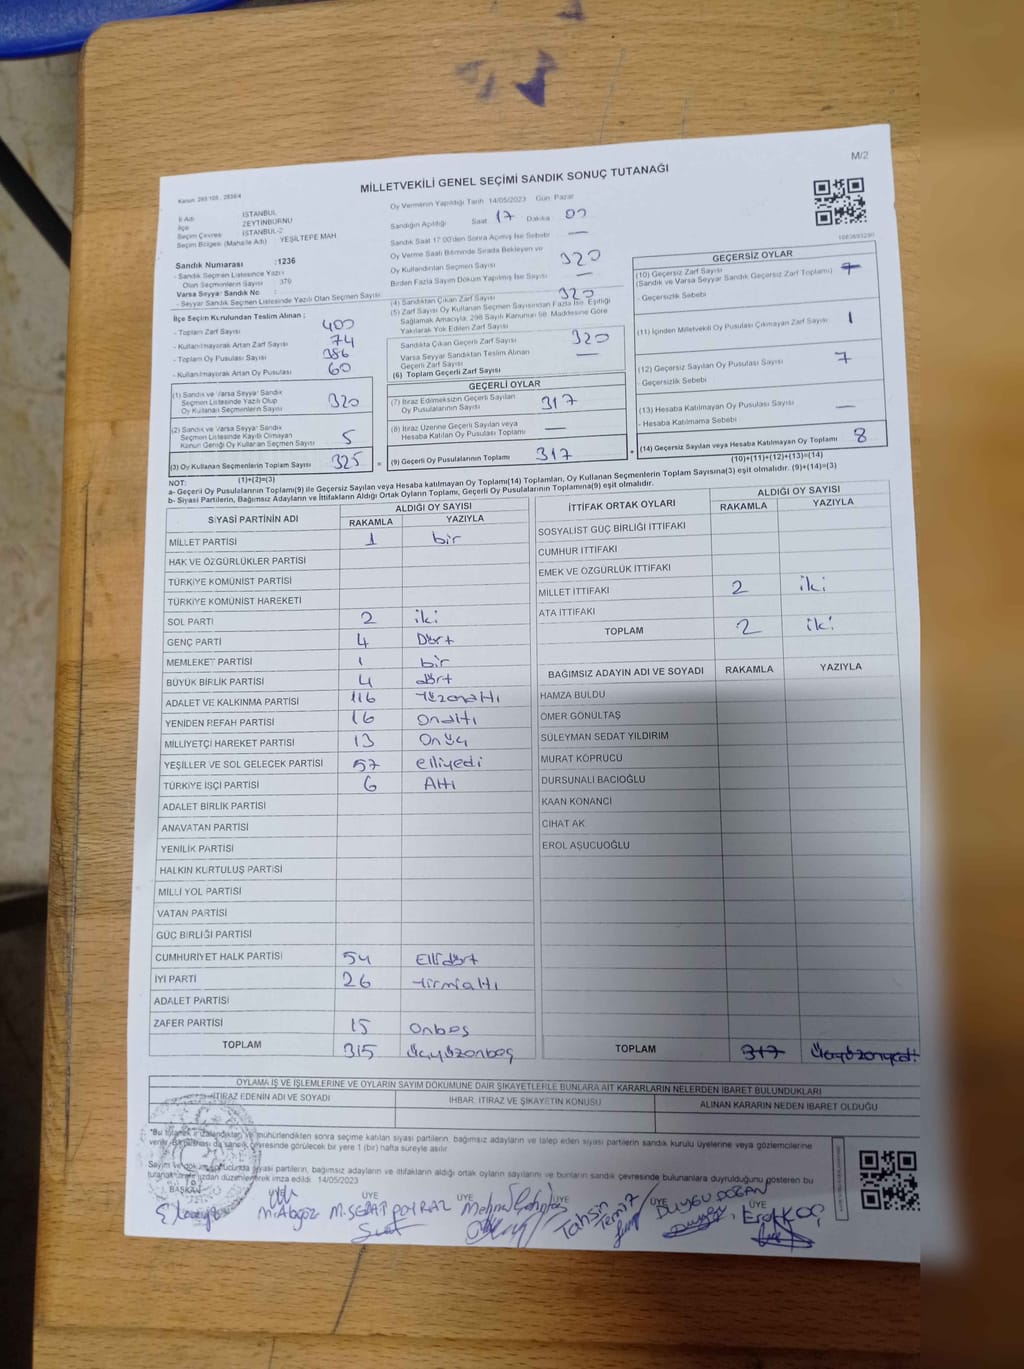 M/2
MİLLETVEKİLİ GENEL SEÇİMİ SANDIK SONUÇ TUTANAĞI
İl Adı İSTANBUL
İlçe ZEYTİNBURNU
Seçim Çevresi İSTANBUL-2
Seçim Bölgesi (Mahalle Adı) YEŞİLTEPE MAH
Sandık Numarası :1236
- Sandık Seçmen Listesinde Yazılı
Olan Seçmenlerin Sayısı : 370
Varsa Seyyar Sandık No :
- Seyyar Sandık Seçmen Listesinde Yazılı Olan Seçmen Sayısı:
İlçe Seçim Kurulundan Teslim Alınan ;
- Toplam Zarf Sayısı 400
- Kullanılmayarak Artan Zarf Sayısı 74
- Toplam Oy Pusulası Sayısı 386
- Kullanılmayarak Artan Oy Pusulası 60
(1) Sandık ve Varsa Seyyar Sandık
Seçmen Listesinde Yazılı Olup
Oy Kullanan Seçmenlerin Sayısı 320
(2) Sandık ve Varsa Seyyar Sandık
Seçmen Listesinde Kayıtlı Olmayan
Kanun Gereği Oy Kullanan Seçmen Sayısı 5
(3) Oy Kullanan Seçmenlerin Toplam Sayısı 325 =
(1)+(2)=(3)
Oy Vermenin Yapıldığı Tarih 14/05/2023 Gün: Pazar
Sandığın Açıldığı Saat 17 Dakika 00
Sandık Saat 17:00'den Sonra Açılmış İse Sebebi —
Oy Verme Saati Bitiminde Sırada Bekleyen ve
Oy Kullandırılan Seçmen Sayısı 320
Birden Fazla Sayım Döküm Yapılmış İse Sayısı —
(4) Sandıktan Çıkan Zarf Sayısı 320
(5) Zarf Sayısı Oy Kullanan Seçmen Sayısından Fazla İse, Eşitliği
Sağlamak Amacıyla, 298 Sayılı Kanunun 98. Maddesine Göre
Yakılarak Yok Edilen Zarf Sayısı
Sandıkta Çıkan Geçerli Zarf Sayısı 320
Varsa Seyyar Sandıktan Teslim Alınan
Geçerli Zarf Sayısı —
(6) Toplam Geçerli Zarf Sayısı
GEÇERLİ OYLAR
(7) İtiraz Edilmeksizin Geçerli Sayılan
Oy Pusulalarının Sayısı 317
(8) İtiraz Üzerine Geçerli Sayılan veya
Hesaba Katılan Oy Pusulası Toplamı —
(9) Geçerli Oy Pusulalarının Toplamı 317 +
GEÇERSİZ OYLAR
(10) Geçersiz Zarf Sayısı
(Sandık ve Varsa Seyyar Sandık Geçersiz Zarf Toplamı)
- Geçersizlik Sebebi
(11) İçinden Milletvekili Oy Pusulası Çıkmayan Zarf Sayısı 1
(12) Geçersiz Sayılan Oy Pusulası Sayısı 7
- Geçersizlik Sebebi
(13) Hesaba Katılmayan Oy Pusulası Sayısı —
- Hesaba Katılmama Sebebi
(14) Geçersiz Sayılan veya Hesaba Katılmayan Oy Toplamı 8
(10)+(11)+(12)+(13)=(14)
NOT:
a- Geçerli Oy Pusulalarının Toplamı(9) ile Geçersiz Sayılan veya Hesaba katılmayan Oy Toplamı(14) Toplamları, Oy Kullanan Seçmenlerin Toplam Sayısına(3) eşit olmalıdır. (9)+(14)=(3)
b- Siyasi Partilerin, Bağımsız Adayların ve İttifakların Aldığı Ortak Oyların Toplamı, Geçerli Oy Pusulalarının Toplamına(9) eşit olmalıdır.
SİYASİ PARTİNİN ADI ALDIĞI OY SAYISI
RAKAMLA YAZIYLA
MİLLET PARTİSİ 1 bir
HAK VE ÖZGÜRLÜKLER PARTİSİ
TÜRKİYE KOMÜNİST PARTİSİ
TÜRKİYE KOMÜNİST HAREKETİ
SOL PARTİ 2 iki
GENÇ PARTİ 4 Dört
MEMLEKET PARTİSİ 1 bir
BÜYÜK BİRLİK PARTİSİ 4 dört
ADALET VE KALKINMA PARTİSİ 116 Yüzonaltı
YENİDEN REFAH PARTİSİ 16 Onaltı
MİLLİYETÇİ HAREKET PARTİSİ 13 Onüç
YEŞİLLER VE SOL GELECEK PARTİSİ 57 elliyedi
TÜRKİYE İŞÇİ PARTİSİ 6 Altı
ADALET BİRLİK PARTİSİ
ANAVATAN PARTİSİ
YENİLİK PARTİSİ
HALKIN KURTULUŞ PARTİSİ
MİLLİ YOL PARTİSİ
VATAN PARTİSİ
GÜÇ BİRLİĞİ PARTİSİ
CUMHURİYET HALK PARTİSİ 54 Ellidört
İYİ PARTİ 26 Yirmialtı
ADALET PARTİSİ
ZAFER PARTİSİ 15 Onbeş
TOPLAM 315 Üçyüzonbeş
İTTİFAK ORTAK OYLARI ALDIĞI OY SAYISI
RAKAMLA YAZIYLA
SOSYALİST GÜÇ BİRLİĞİ İTTİFAKI
CUMHUR İTTİFAKI
EMEK VE ÖZGÜRLÜK İTTİFAKI
MİLLET İTTİFAKI 2 iki
ATA İTTİFAKI
TOPLAM 2 iki
BAĞIMSIZ ADAYIN ADI VE SOYADI RAKAMLA YAZIYLA
HAMZA BULDU
ÖMER GÖNÜLTAŞ
SÜLEYMAN SEDAT YILDIRIM
MURAT KÖPRÜCÜ
DURSUNALİ BACIOĞLU
KAAN KONANCİ
CİHAT AK
EROL AŞUCUOĞLU
TOPLAM 317 Üçyüzonyedi
OYLAMA İŞ VE İŞLEMLERİNE VE OYLARIN SAYIM DÖKÜMÜNE DAİR ŞİKAYETLERLE BUNLARA AİT KARARLARIN NELERDEN İBARET BULUNDUKLARI
İTİRAZ EDENİN ADI VE SOYADI İHBAR, İTİRAZ VE ŞİKAYETİN KONUSU ALINAN KARARIN NEDEN İBARET OLDUĞU
*Bu tutanak imzalandıktan ve mühürlendikten sonra seçime katılan siyasi partilerin, bağımsız adayların ve talep eden siyasi partilerin sandık kurulu üyelerine veya gözlemcilerine
verilir. Bir nüshası da sandık çevresinde görülecek bir yere 1 (bir) hafta süreyle asılır
Sayım ve döküm sonucunda siyasi partilerin, bağımsız adayların ve ittifakların aldığı ortak oyların sayılarını ve bunların sandık çevresinde bulunanlara duyrulduğunu gösteren bu
tutanak tarafımızdan düzenlenerek imza edildi. 14/05/2023
BAŞKAN ÜYE ÜYE ÜYE ÜYE ÜYE
M. Abgöz M. SERAT POYRAZ Mehmet Tahsin DUYGU DOĞAN Erol KOÇ